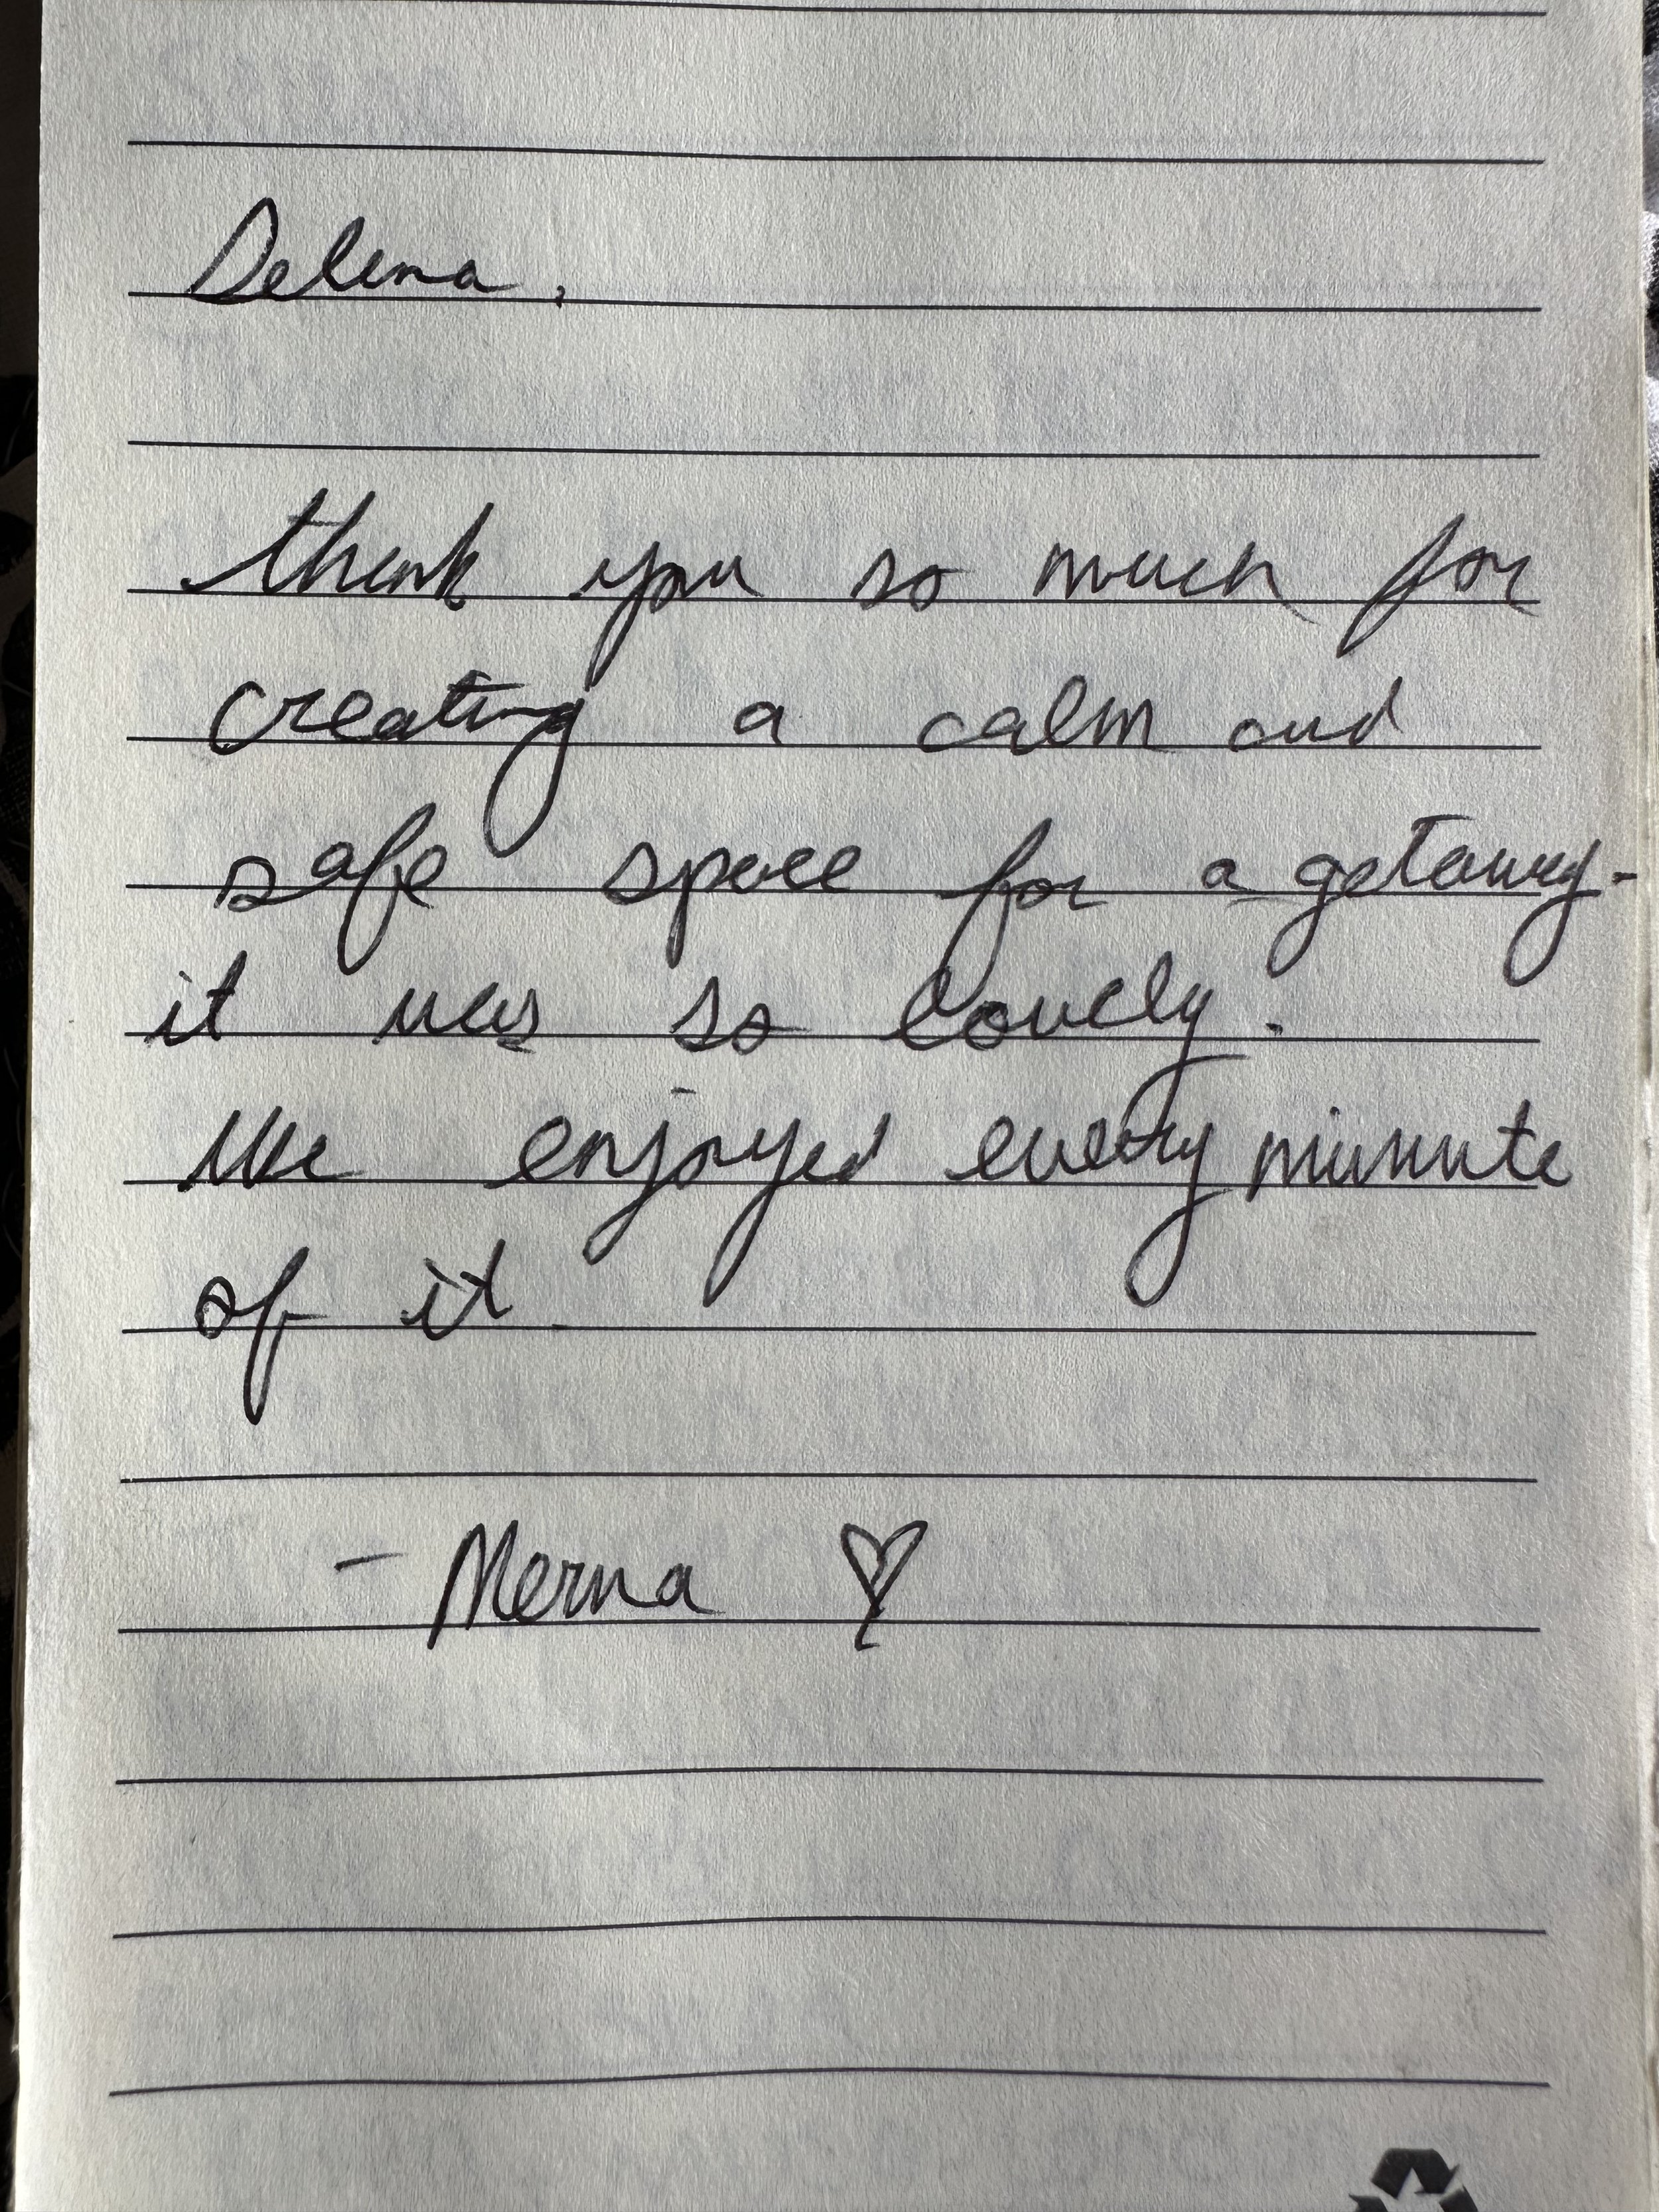 Selena,
thank you so much for
creating a calm and
safe space for a getaway-
it was so lovely.
We enjoyed every minute
of it.
- Merna ♡